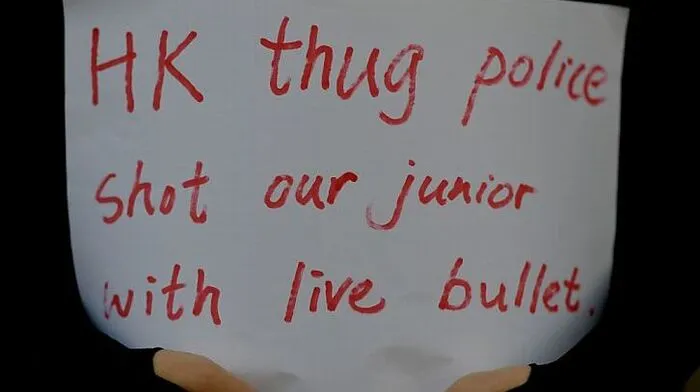 HK thug police
shot our junior
with live bullet.